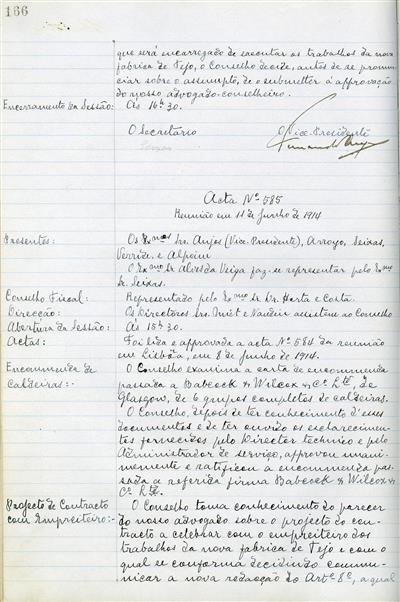 166
que será encarregado de executar os trabalhos da nova
fabrica do Tejo, o Conselho decide, antes de se pronun-
ciar sobre o assumpto, de o submetter á approvação
do nosso advogado-conselheiro.
Encerramento da Sessão: Ás 16h 30.
O Secretario O Vice-Presidente
Acta Nº 585
Reunião em 11 de Junho de 1914
Presentes: Os Exmos Srs. Anjos (Vice-Presidente), Arroyo, Seixas,
Verride, e Alpoim
O Exmo Sr Alves da Veiga faz-se representar pelo Exmo
Sr. Seixas.
Conselho Fiscal: Representado pelo Exmo Sr Dr. Horta e Costa.
Direcção: Os Directores Srs. Mist e Naudin assistem ao Conselho
Abertura da Sessão: Ás 15h 30.
Actas: Foi lida e approvada a acta Nº 584 da reunião
em Lisbôa, em 8 de Junho de 1914.
Encommenda de O Conselho examina a carta de encommenda
Caldeiras:- passada a Babcock & Wilcox & Cº Ltd, de
Glasgow, de 6 grupos completos de caldeiras.
O Conselho, depois de ter conhecimento d'esses
documentos e de ter ouvido os esclarecimentos
fornecidos pelo Director technico e pelo
Administrador de serviço, approvou unani-
memente e ratificou a encommenda pas-
sada a referida firma Babcock & Wilcox &
Cº Ltd.
Projecto de Contracto O Conselho toma conhecimento do parecer
com Empreiteiro:- do nosso advogado sobre o projecto do con-
tracto a celebrar com o empreiteiro dos
trabalhos da nova fabrica do Tejo e com o
qual se conforma decidindo commu-
nicar a nova redacção do Artº 8º, a qual